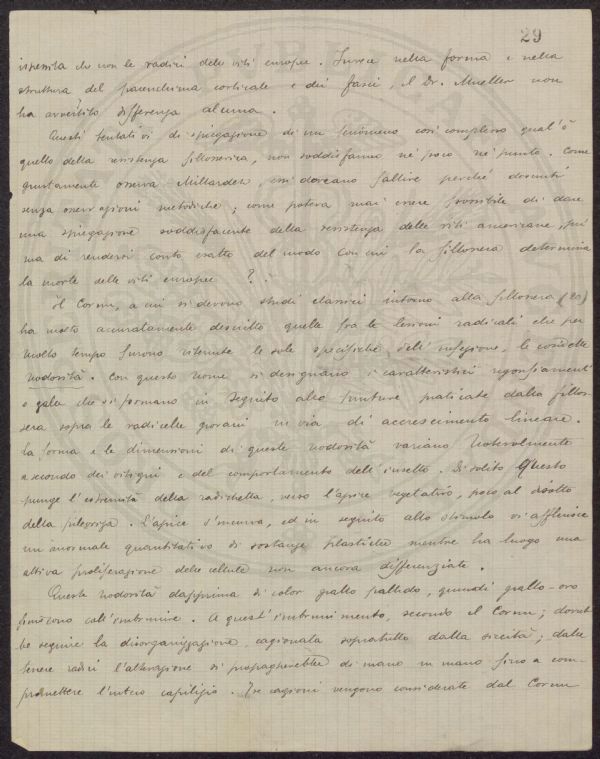 29
ispessita che non le radici delle viti europee. Invece nella forma e nella
struttura del parenchima corticale e dei fasci, il Dr. Mueller non
ha avvertito differenza alcuna.
Questi tentativi di spiegazione di un fenomeno così complesso qual'è
quello della resistenza fillosserica, non soddisfanno nè poco nè punto. Come
giustamente osserva Millardet, essi doveano fallire perché
senza osservazioni metodiche; come poteva mai essere possibile di dare
una spiegazione soddisfacente della resistenza delle viti americane, pri
ma di rendersi conto esatto del modo con cui la fillossera determina
la morte delle viti europee?
Il Cornu, a cui si devono studi classici intorno alla fillossera (20)
ha molto accuratamente descritto quelle fra le lesioni radicali che per
molto tempo furono ritenute le sole specifiche dell'infezione, le cosidette
nodosità. Con questo nome si designano i caratteristici rigonfiamenti
o galle che si formano in seguito alle punture praticate dalla fillos-
sera sopra le radicelle giovani in via di accrescimento lineare.
La forma e le dimensioni di queste nodosità variano notevolmente
a seconda dei vitigni e del comportamento dell'insetto. Di solito questo
punge l'estremità della radichetta, verso l'apice vegetativo, poco al disotto
della pileoriza. L'apice s'incurva, ed in seguito allo stimolo vi affluisce
un'anormale quantitativo di sostanze plastiche mentre ha luogo una
attiva proliferazione delle cellule non ancora differenziate.
Queste nodosità dapprima di color giallo pallido, quindi giallo-oro
finiscono coll'imbrunire. A quest'imbrunimento, secondo il Cornu, dovreb
be seguire la disorganizzazione, cagionata sopratutto dalla siccità; dalle
tenere radici l'alterazione si propagherebbe di mano in mano fino a com-
promettere l'intero capillizio. Tre cagioni vengono considerate dal Cornu